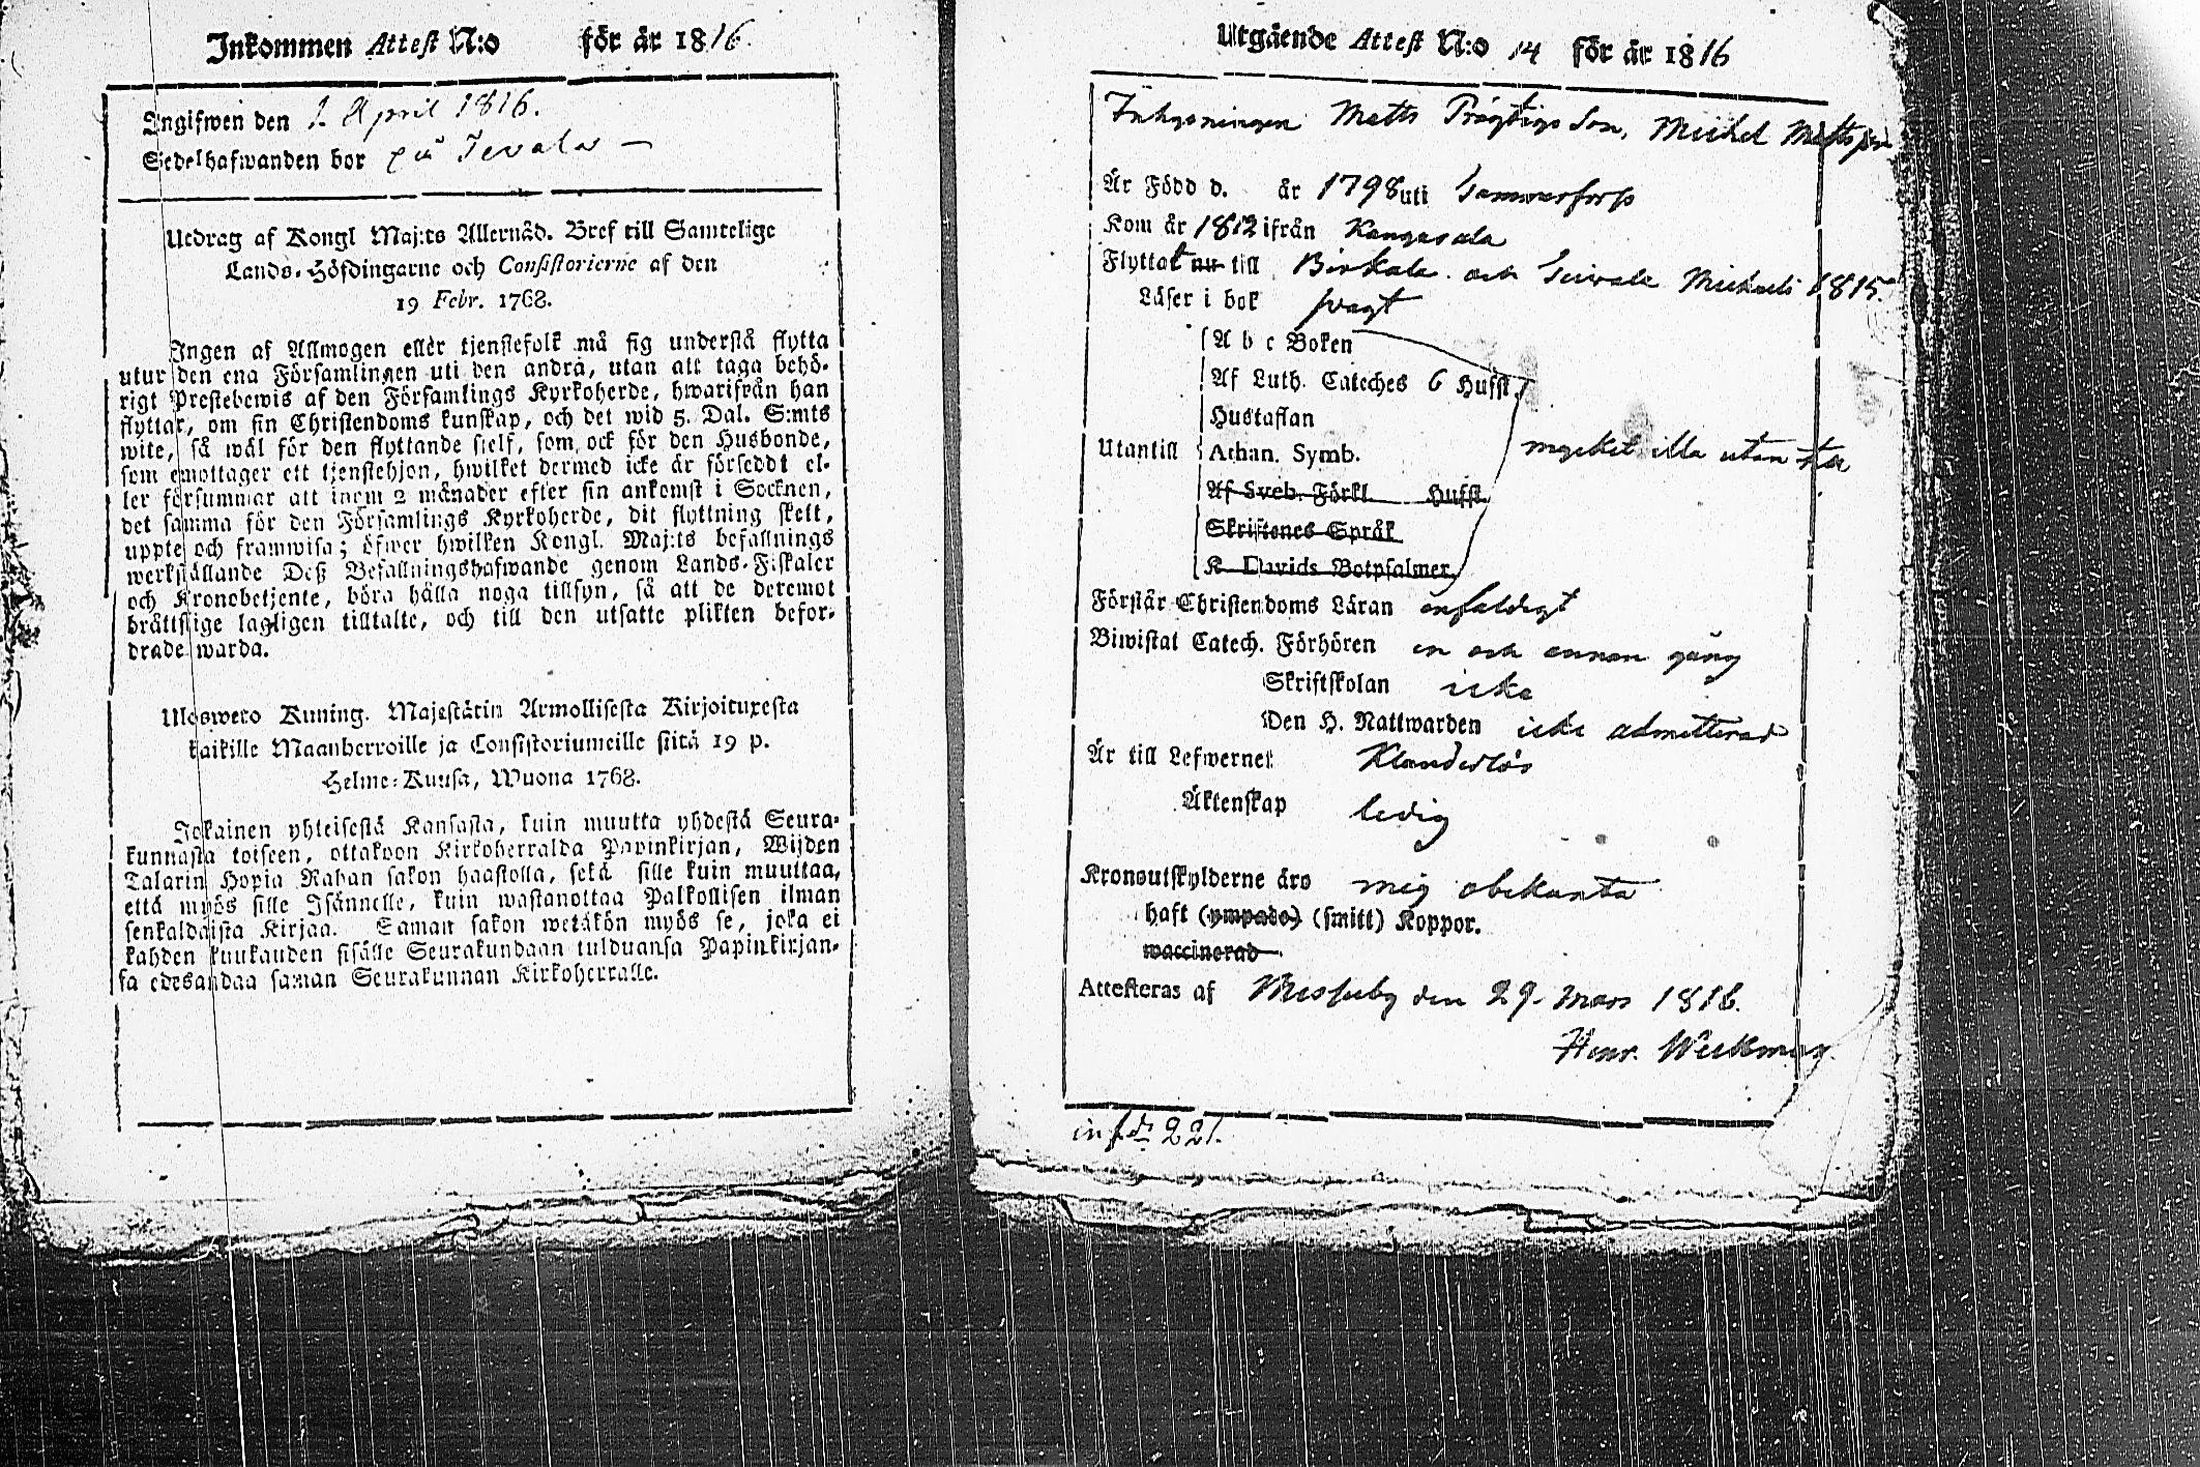 Inkommen Attest N:o för år 1816.
Ingifwen den 1. April 1816.
Sedelhafwanden bor på
Utdrag af Kongl Maj:ts Allernåd. Bref till Samtelige
Lands-Höfdingarne och Consistorierne af den
19 Febr. 1768.
Ingen af Allmogen eller tjenstefolk må sig understå flytta
utur den ena Församlingen uti den andra, utan att taga behö-
rigt Prestebewis af den Församlings Kyrkoherde, hwarifrån han
flyttar, om sin Christendoms kunskap, och det wid 5. Dal. S:mts
wite, så wäl för den flyttande sielf, som ock för den Husbonde,
som emottager ett tjenstehjon, hwilket dermed icke är förseddt el-
ler försummar att inom 2 månader efter sin ankomst i Socknen,
det samma för den Församlings Kyrkoherde, dit flyttning skett,
uppte och framwisa; öfwer hwilken Kongl. Maj:ts befallnings
werkställande Deß Befallningshafwande genom Lands-Fiskaler
och Kronobetjente, böra hålla noga tillsyn, så att de deremot
brättslige lagligen tilltalte, och till den utsatte plikten befor-
drade warda.
Uloswero Kuning. Majestätin Armollisesta Kirjoituxesta
kaikille Maanherroille ja Consistoriumeille siitä 19 p.
Helme-Kuusa, Wuona 1768.
Jokainen yhteisestä Kansasta, kuin muutta yhdestä Seura-
kunnasta toiseen, ottakoon Kirkoherralda Papinkirjan, Wijden
Talarin Hopia Rahan sakon haastolla, sekä sille kuin muuttaa,
että myös sille Isännelle, kuin wastanottaa Palkollisen ilman
senkaldaista Kirjaa. Saman sakon wetäkön myös se, joka ei
kahden kuukauden sisälle Seurakundaan tulduansa Papinkirjan-
sa edesandaa saman Seurakunnan Kirkoherralle.
Utgående Attest N:o 14 för år 1816
Inhysningen Matts Son, Michel Mattsson
Är Född d. år 1798 uti
Kom år 1812 ifrån Kangasala
Flyttat nu till Birkala och Michaeli 1815.
Läser i bok svagt
A b c Boken
Af Luth. Cateches 6 Hufst.
Hustaflan
Utantill Athan. Symb. mycket illa utan
Af Sveb. Förkl. Hufst.
Skriftenes Språk
K Davids Botpsalmer.
Förstår Christendoms Läran enfaldigt
Biwistat Catech. Förhören en och annan gång
Skriftskolan icke
Den H. Nattwarden icke admitterad
Är till Lefwernet Klanderlös
Äktenskap ledig
Kronoutskylderne äro mig obekanta
haft (ympade) (smitt) Koppor.
waccinerad
Attesteras af Messuby den 29. Mars 1816.
Henr. Weckman
221.